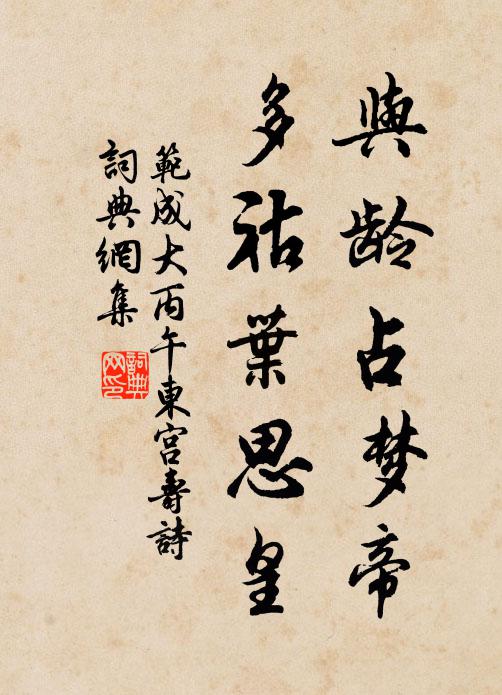 與龄占梦帝
多祜葉思皇
範成大丙午東宮壽詩
詞典網集
詞典网印